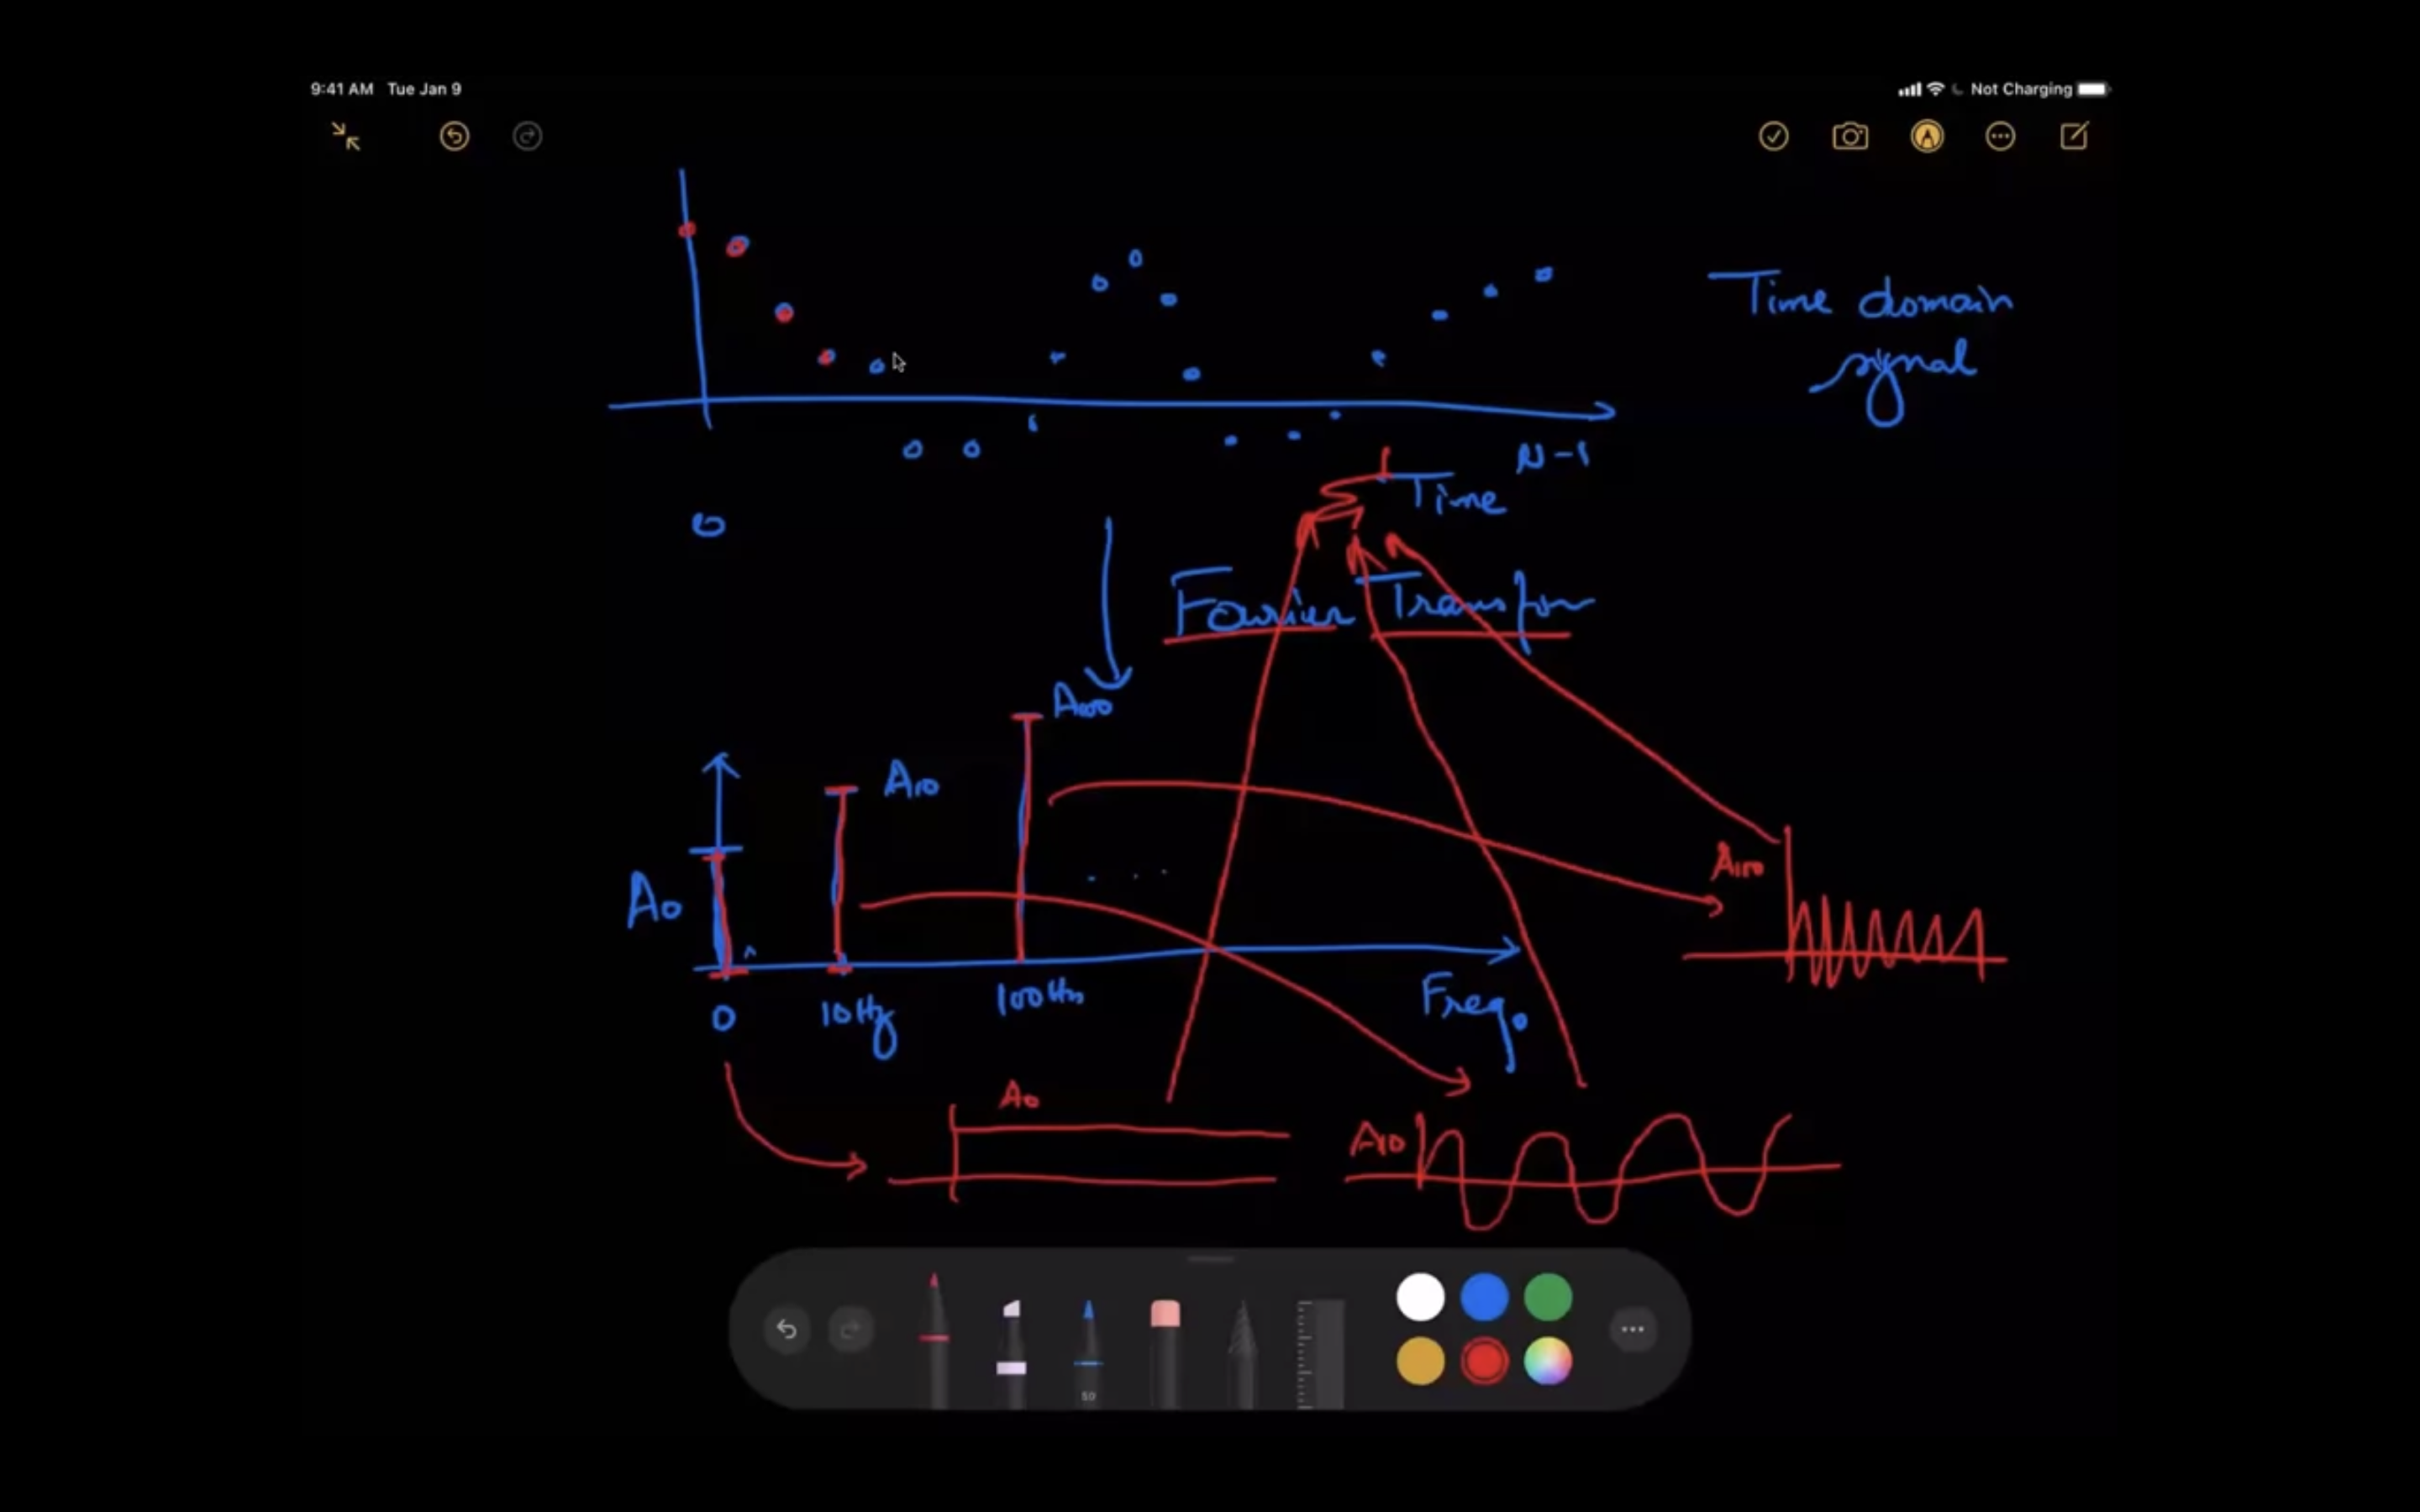 9:41 AM Tue Jan 9
Not Charging
Time domain
signal
N-1
Time
0
Fourier Transfor
A100
A10
A100
A0
Freq.
0 10Hz 100Hz
A0
A10
50